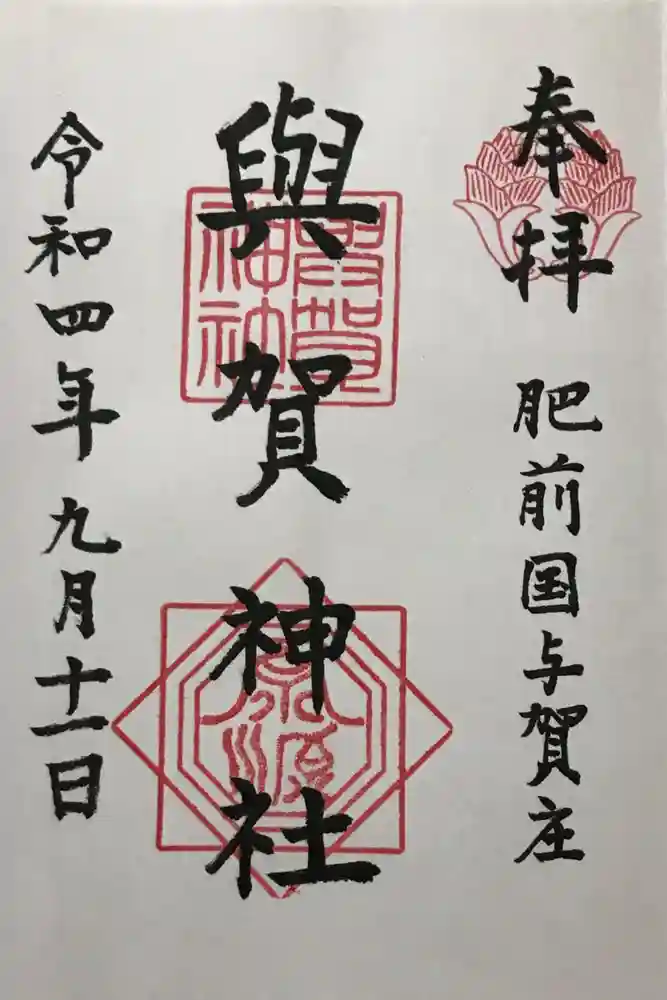 奉拝 肥前国与賀庄
與賀神社
令和四年九月十一日
與賀神社